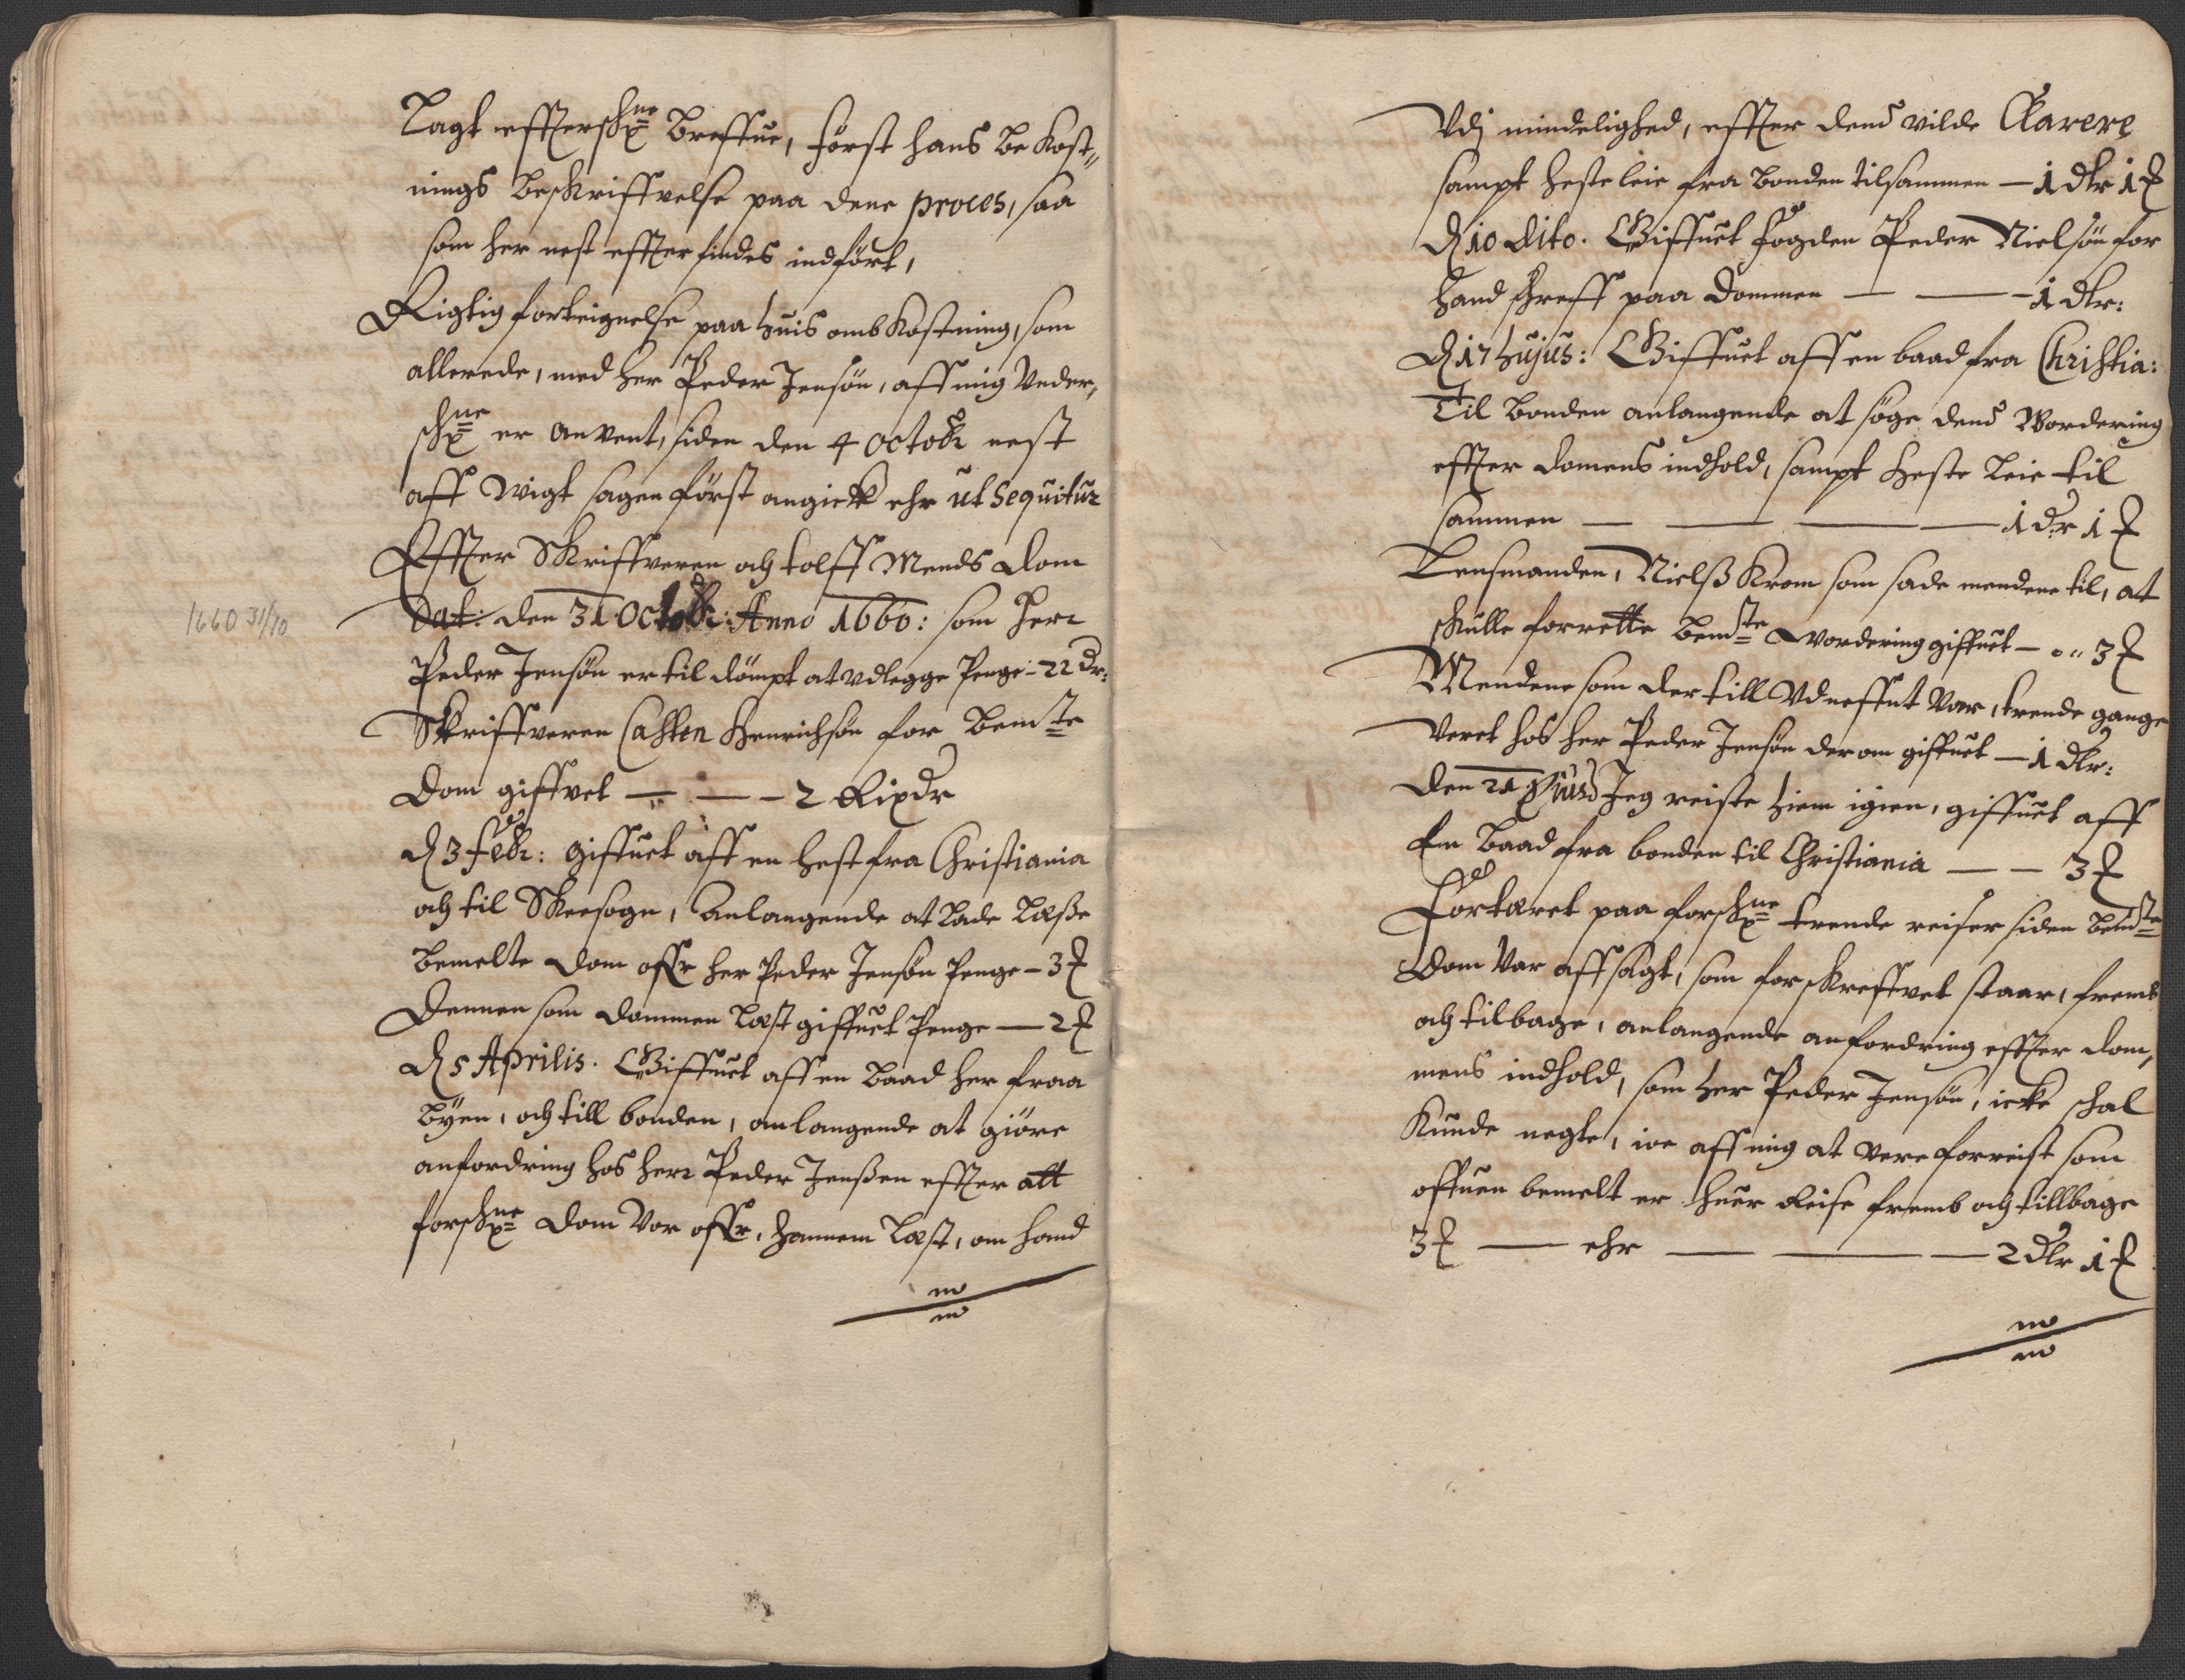 Lagt effterschne Breffue, först hans be Kost„
nings beskriffvelse paa dene proces, saa
som her nest effter findes indfört,
Rigtig forteignelse paa huis omb Kostning, som
allerede, med her Peder Jensön, aff mig Under„
schne er anvent, siden den 4 octobr nest
aff wigt sagen först angick ehr ut sequitur
Effter Skriffveren och tolff Mends dom
Dat: den 31 Octobr: Anno 1660: som Herr
1660 31/10
Peder Jensön er til dömpt at vdlegge Penge - 22 dr:
Skriffveren Casten Henrichsön for bemte
Dom giffvet — — 2 Rixdr
D 3 Febr: giffuet aff en hest fra Christiania
och til Skeesogn, anlangende at lade læße
bemelte dom offr her Peder Jensön Penge - 3 ℔
Dennen som dommen læst giffuet Penge — 2 ℔
D 5 Aprilis. Giffuet aff en baad her fraa
byen, och till bonden, anlangende at giöre
anfordring hos herr Peder Jenßen effter att
forschne dom vor offr, hannem læst, om hand
m
m
Udj mindelighed, effter dend vilde Clarere
sampt hesteleie fra bonden tilsammen — 1 dlr 1 ℔
D 10 dito. Giffuet fogden Peder Nielsön for
hand schreff paa dommen — — 1 dlr:
D 17 hujus: Giffuet aff en baad fra Christia:
Til bonden anlangende at söge dend Wordering
effter domens indhold, sampt heste leie til
sammen — — — — 1 dr 1 ℔
Lensmanden, Nielß Krom som sade mendene til, at
skulle forrette bemte Wordering giffuet — 3 ℔
Mendene som der till Udneffnt var, trende gange
veret hos her Peder Jensön derom giffuet — 1 dlr:
Den 21 Jeg reiste hiem igien, giffuet aff
En baad fra bonden til Christiania — — 3 ℔
Fortæret paa forschne trende reiser siden bemte
Dom var affsagt, som forskreffvet staar, fremb
och tilbage, anlangende anfordring effter dom„
mens indhold, som her Peder Jensön, icke schal
Kunde negte, ioe aff mig at vere forreist som
offuen bemelt er huer Reise fremb och tillbage
3 ℔ — ehr — — — 2 dlr 1 ℔
m
m